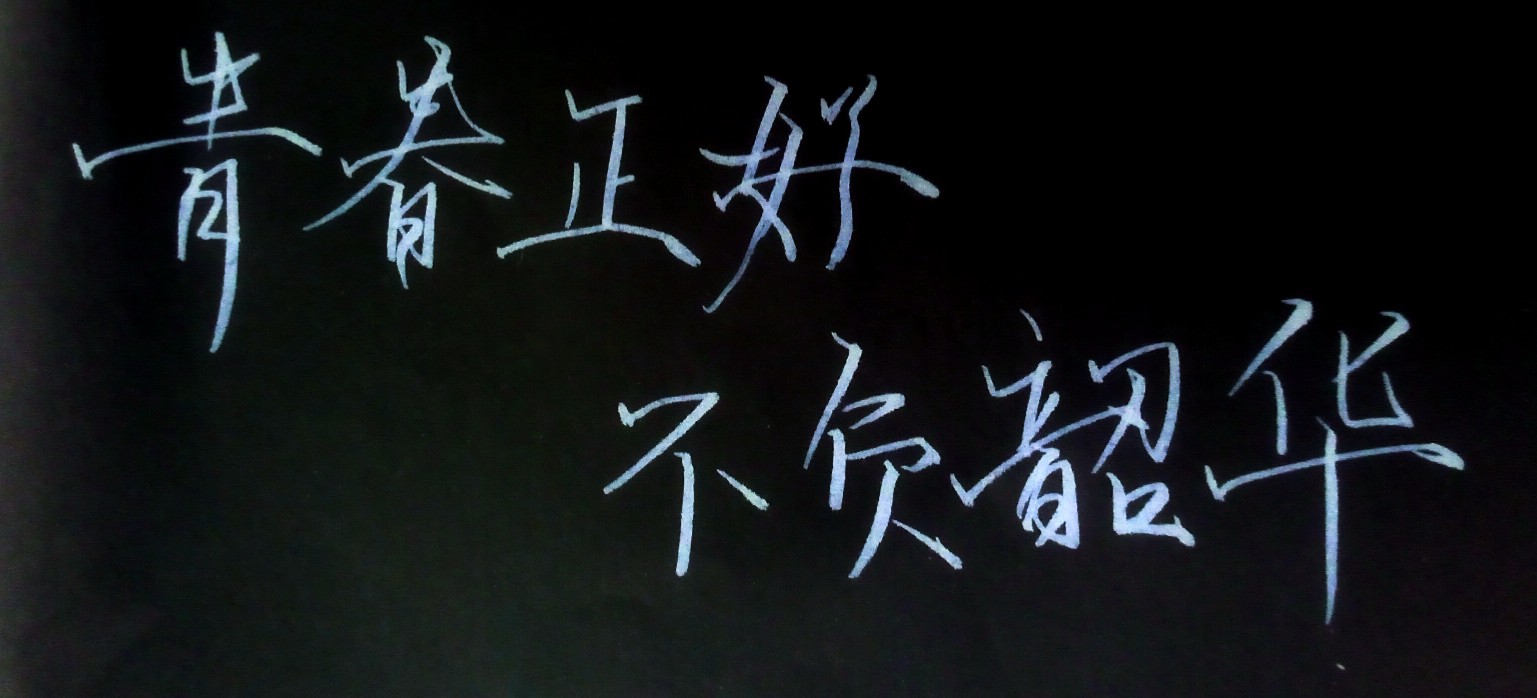 青春正好
不负韶华